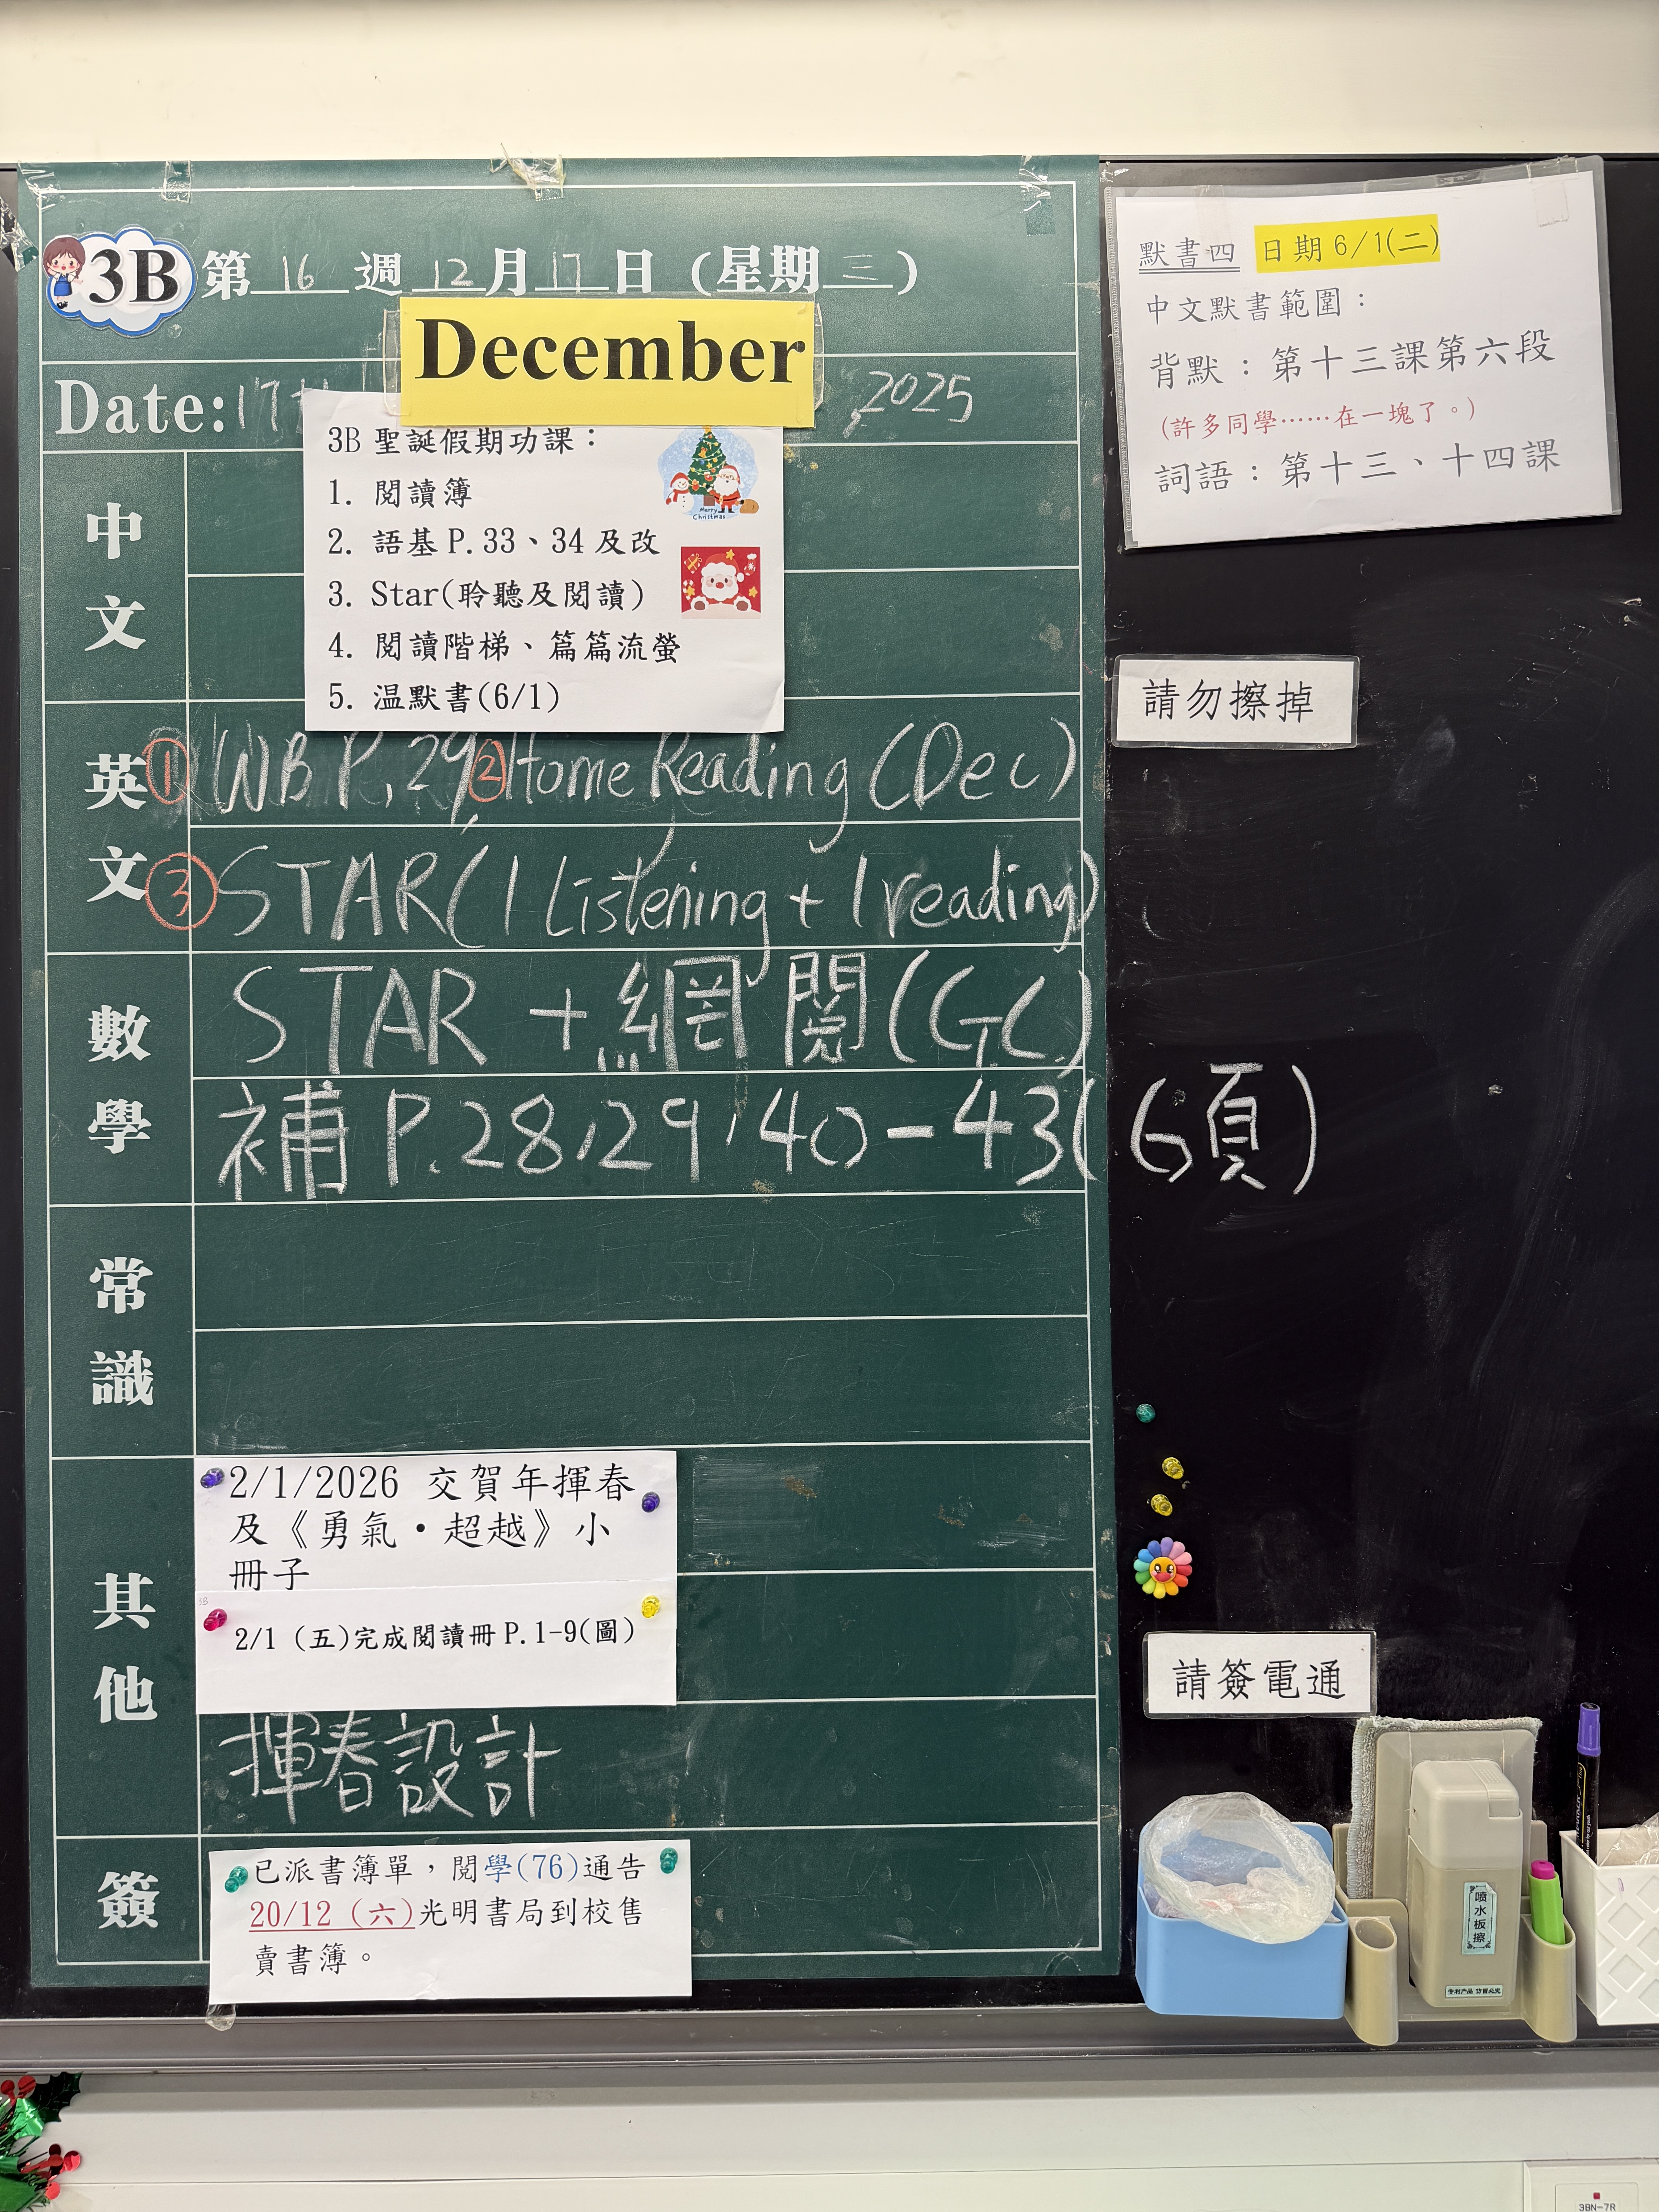 3B 第16週12月17日(星期三)
December
Date:17 ,2025
3B 聖誕假期功課：
1. 閱讀簿
2. 語基 P.33、34 及改
3. Star(聆聽及閱讀)
4. 閱讀階梯、篇篇流螢
5. 温默書(6/1)
Merry
Christmas
中文
英文
① WB P.29, ② Home Reading (Dec)
③ STAR (1 Listening + 1 reading)
數學
STAR + 網閱 (GC)
補 P.28,29,40-43(6頁)
常識
其他
2/1/2026 交賀年揮春
及《勇氣•超越》小
冊子
3B
2/1 (五)完成閱讀冊 P.1-9(圖)
揮春設計
簽
已派書簿單，閱學(76)通告
20/12 (六)光明書局到校售
賣書簿。
默書四 日期 6/1(二)
中文默書範圍：
背默：第十三課第六段
(許多同學……在一塊了。)
詞語：第十三、十四課
請勿擦掉
請簽電通
喷水板擦
专利产品 仿冒必究
3BN-7R